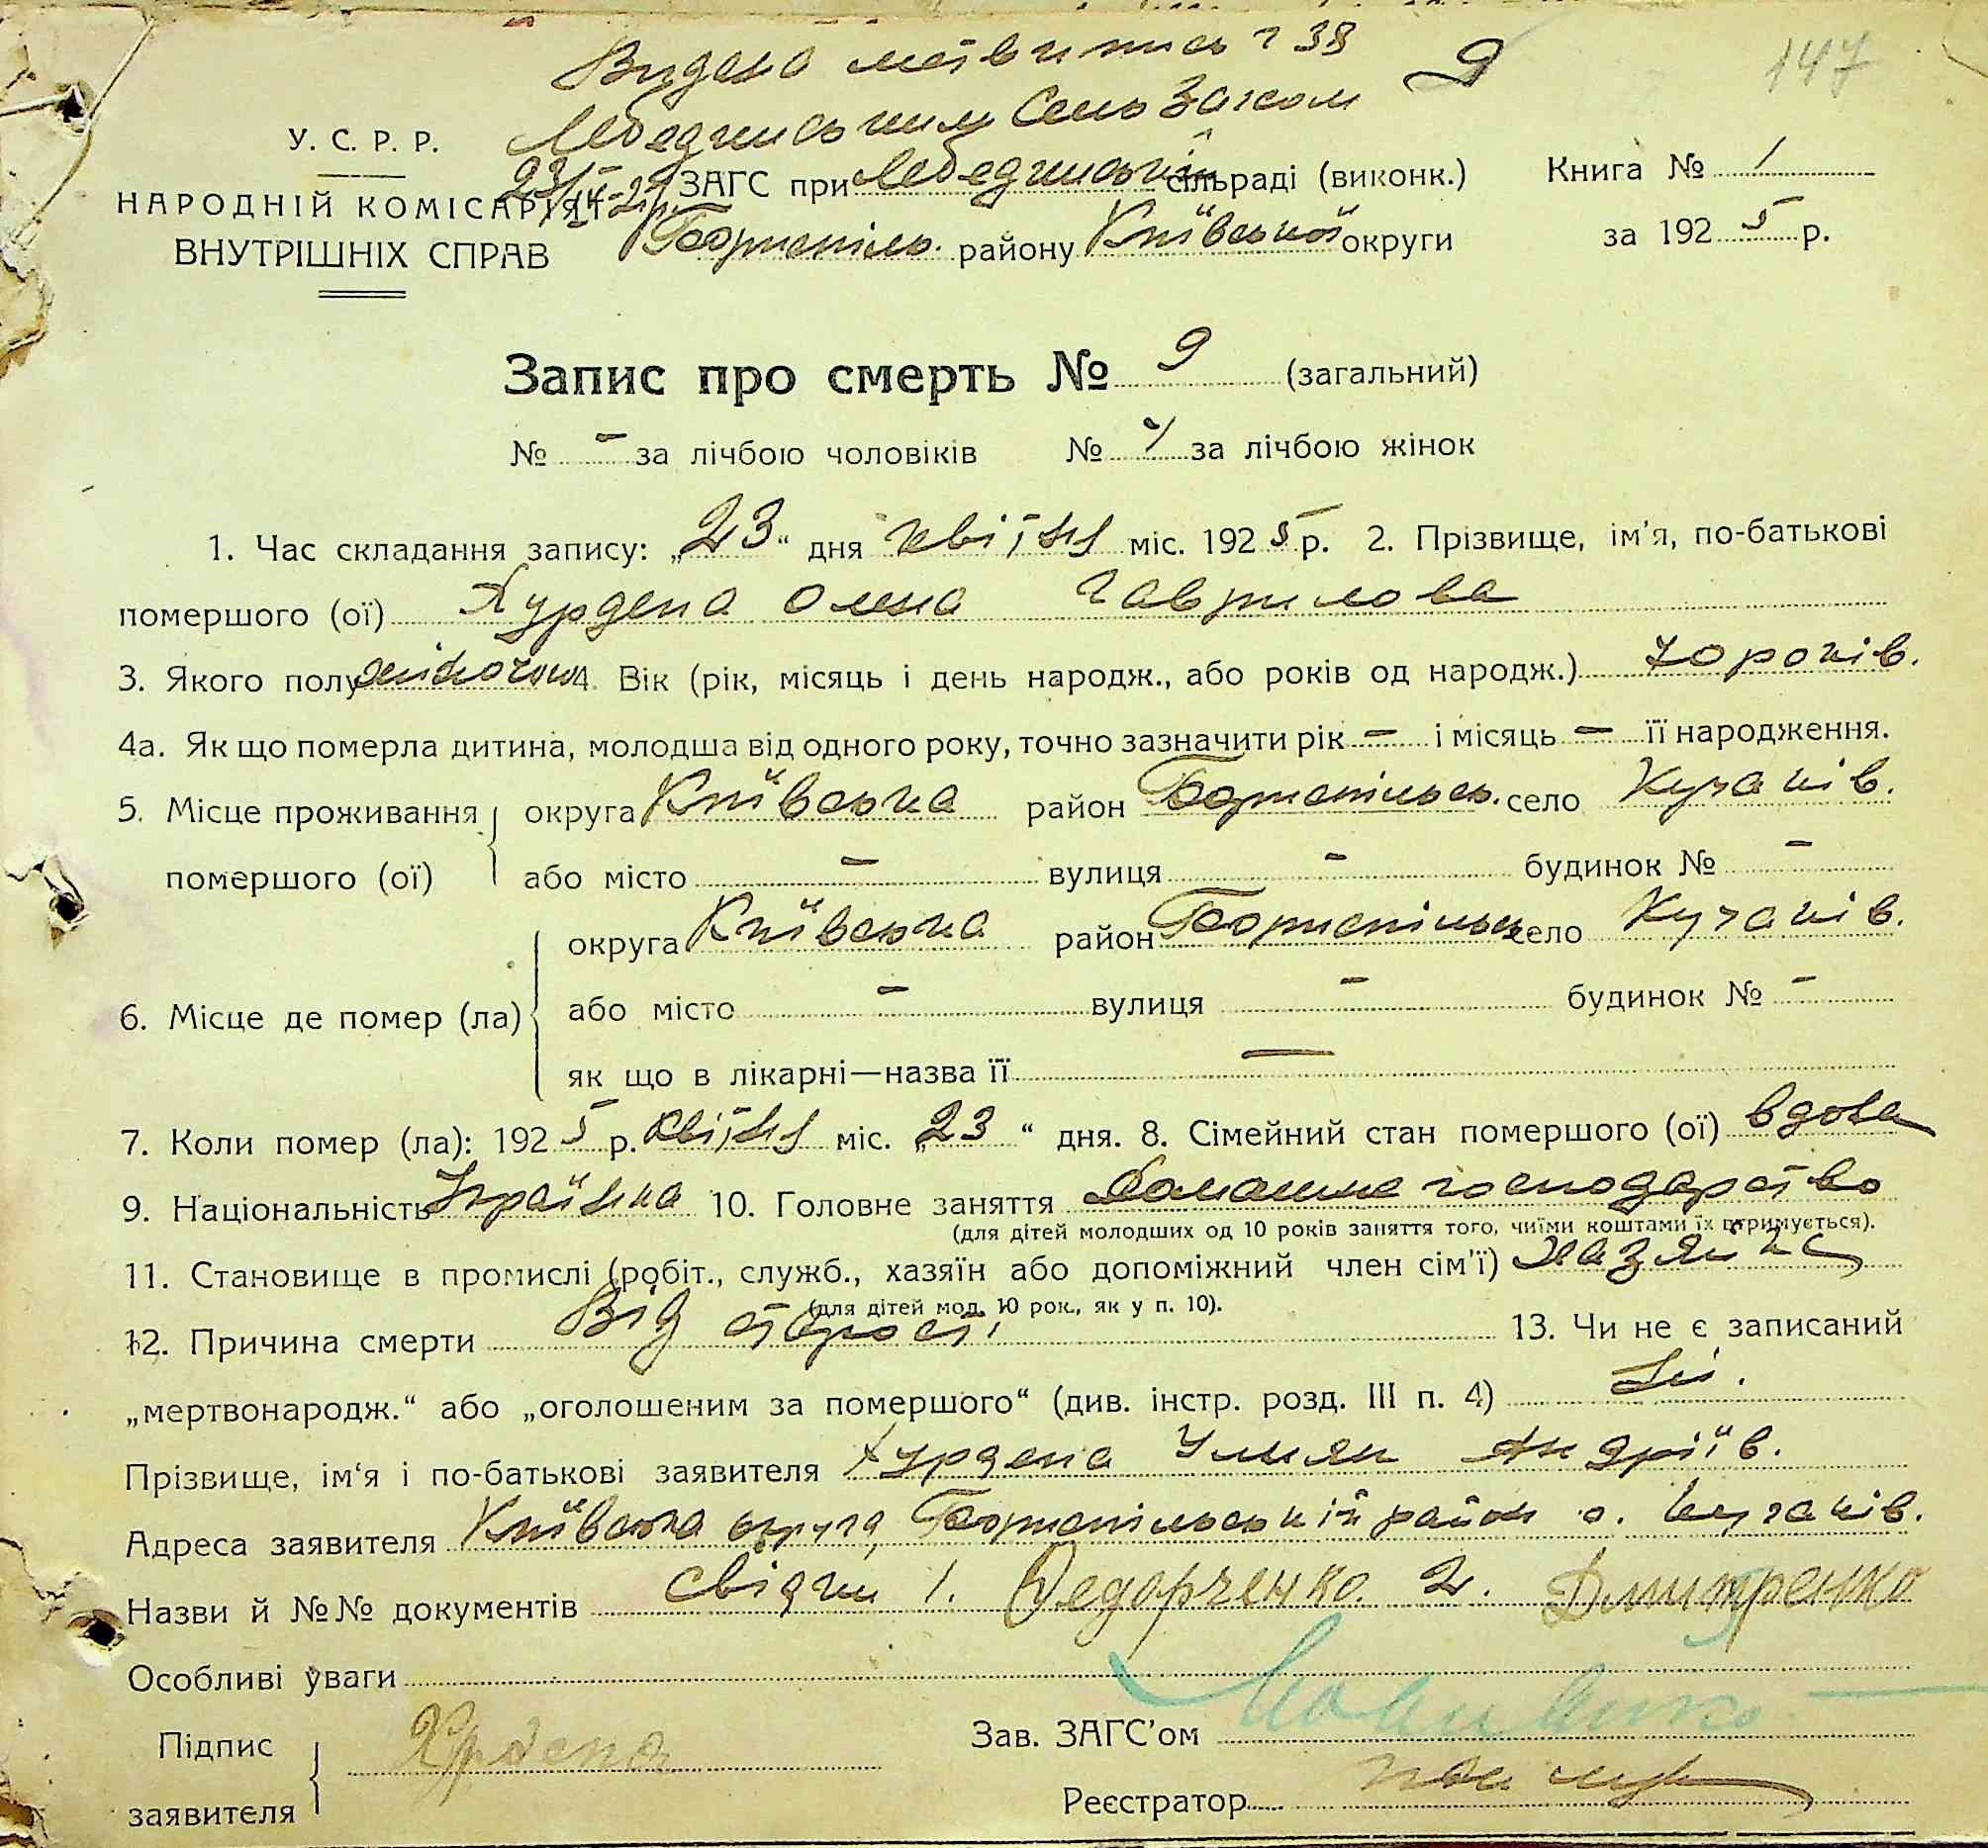 147
Видана метвипись г 38 9
Лебединським СельЗагсом
У. С. Р. Р.
23/IV-25р. ЗАГС при Лебединській сільраді (виконк.) Книга № 1
НАРОДНІЙ КОМІСАРІЯТ
ВНУТРІШНІХ СПРАВ Бориспіль. району Київської округи за 1925 р.
Запис про смерть № 9 (загальний)
№ - за лічбою чоловіків № 4 за лічбою жінок
1. Час складання запису: „23“ дня квітня міс. 1925 р. 2. Прізвище, ім'я, по-батькові
помершого (ої) Хурдепа Олена Гаврилова
3. Якого полу жіночого 4. Вік (рік, місяць і день народж., або років од народж.) 70 років.
4а. Як що померла дитина, молодша від одного року, точно зазначити рік – і місяць – її народження.
5. Місце проживання округа Київська район Бориспільск. село Кучаків.
помершого (ої) або місто – вулиця – будинок № –
округа Київська район Бориспільск село Кучаків.
6. Місце де помер (ла) або місто – вулиця – будинок № –
як що в лікарні—назва її —
7. Коли помер (ла): 1925 р. квітня міс. „23“ дня. 8. Сімейний стан помершого (ої) вдова
9. Національність Українка 10. Головне заняття Домашнє господарство
(для дітей молодших од 10 років заняття того, чиїми коштами їх отримується).
11. Становище в промислі (робіт., служб., хазяїн або допоміжний член сім'ї) хазяйка
(для дітей мол. 10 рок., як у п. 10).
12. Причина смерти Від старості 13. Чи не є записаний
„мертвонародж.“ або „оголошеним за помершого“ (див. інстр. розд. III п. 4) Ні.
Прізвище, ім'я і по-батькові заявителя Хурдепа Улиян Андріїв.
Адреса заявителя Київська округа, Бориспільський район с. Кучаків.
Назви й №№ документів свідки 1. Федорченко. 2. Дмитренко
Особливі уваги
Підпис заявителя Хурдепа Зав. ЗАГС'ом
Реєстратор